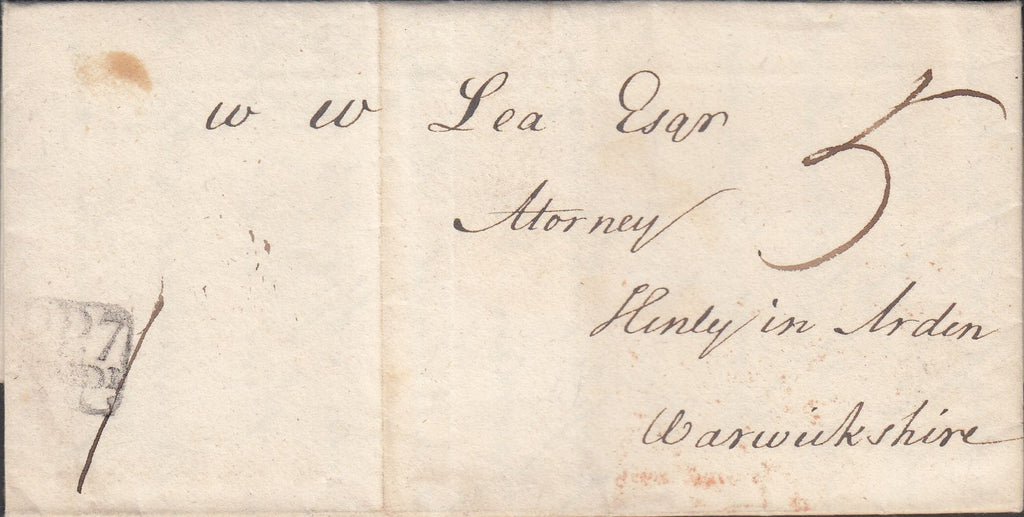 W W Lea Esqr
5
Attorney
Henly in Arden
Warwickshire
7